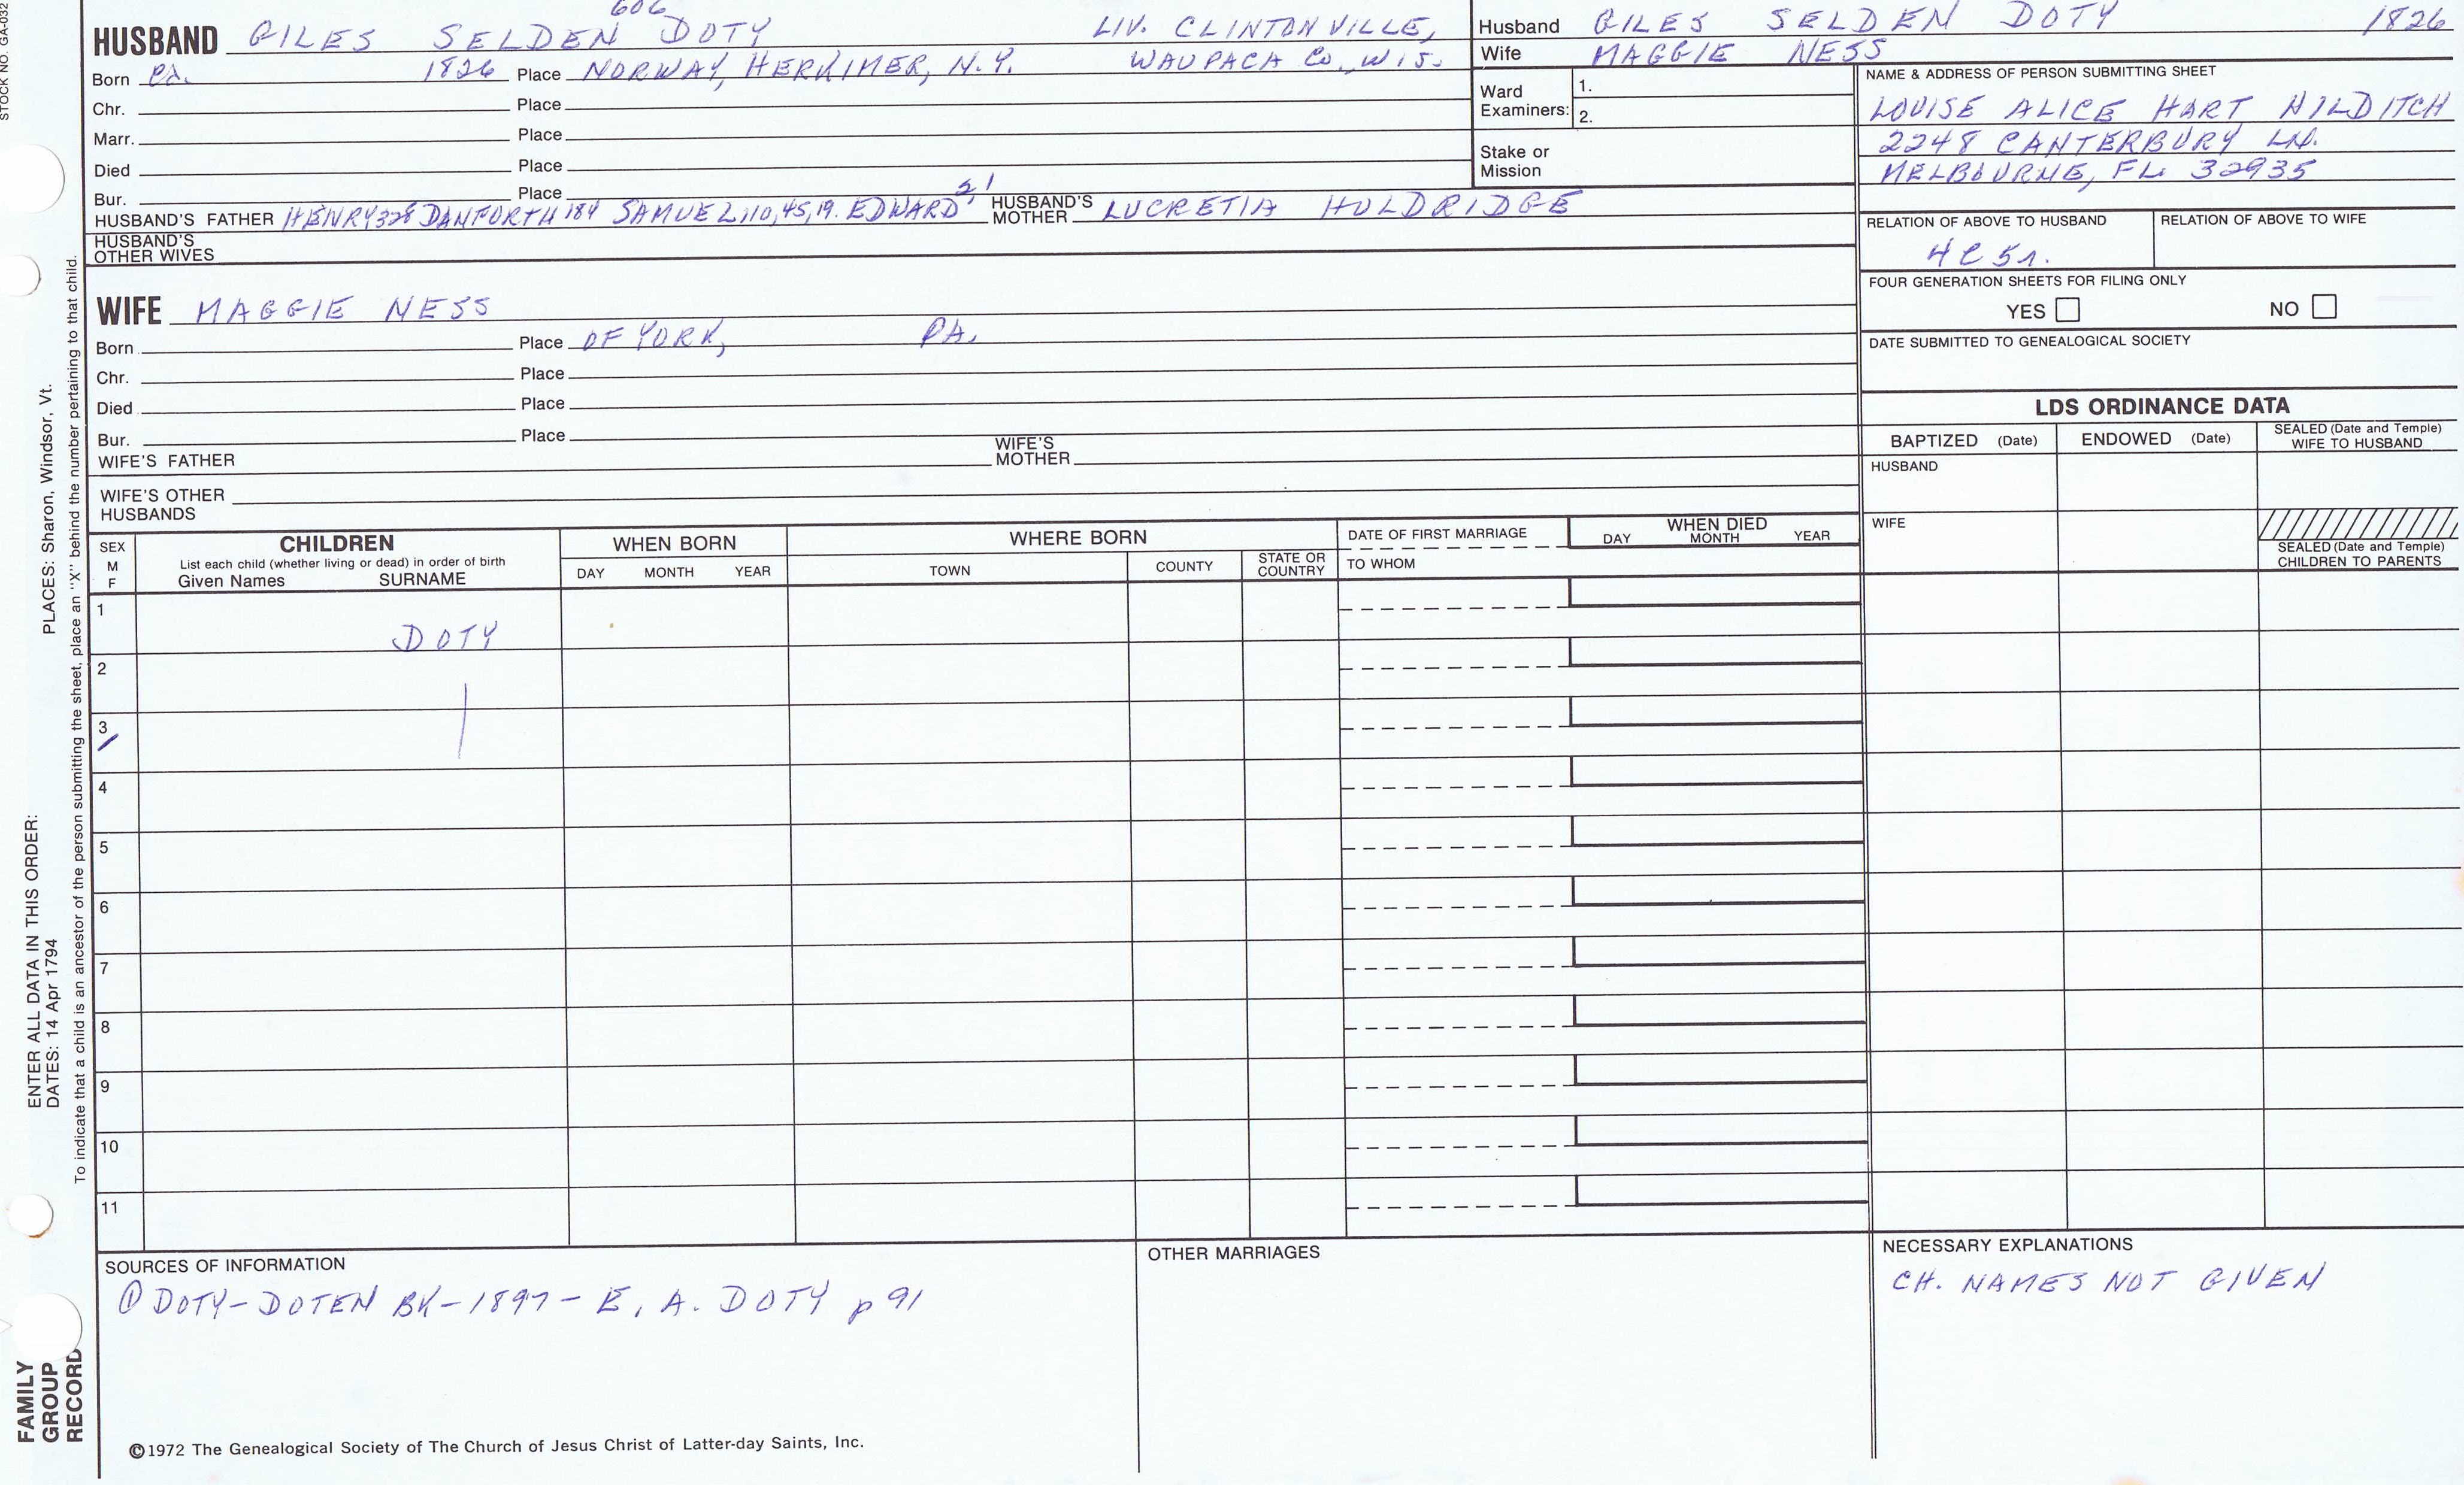 STOCK NO. GA-032
606
HUSBAND GILES SELDEN DOTY LIV. CLINTONVILLE,
Born ca. 1826 Place NORWAY, HERKIMER, N.Y. WAUPACA Co., WIS.
Chr. Place
Marr. Place
Died Place
Bur. Place
HUSBAND'S FATHER HENRY 328 DANFORTH 184 SAMUEL, 110, 45, 19. EDWARD HUSBAND'S MOTHER LUCRETIA HOLDRIDGE
HUSBAND'S
OTHER WIVES
WIFE MAGGIE NESS
Born Place OF YORK, PA.
Chr. Place
Died Place
Bur. Place
WIFE'S FATHER WIFE'S MOTHER
WIFE'S OTHER
HUSBANDS
Husband GILES SELDEN DOTY 1826
Wife MAGGIE NESS
Ward
Examiners:
1.
2.
Stake or
Mission
NAME & ADDRESS OF PERSON SUBMITTING SHEET
LOUISE ALICE HART HILDITCH
2248 CANTERBURY LN.
MELBOURNE, FL. 32935
RELATION OF ABOVE TO HUSBAND RELATION OF ABOVE TO WIFE
4C5r.
FOUR GENERATION SHEETS FOR FILING ONLY
YES NO
DATE SUBMITTED TO GENEALOGICAL SOCIETY
LDS ORDINANCE DATA
BAPTIZED (Date) ENDOWED (Date) SEALED (Date and Temple)
WIFE TO HUSBAND
HUSBAND
WIFE
SEALED (Date and Temple)
CHILDREN TO PARENTS
SEX
M
F
CHILDREN
List each child (whether living or dead) in order of birth
Given Names SURNAME
WHEN BORN
DAY MONTH YEAR
WHERE BORN
TOWN COUNTY STATE OR COUNTRY
DATE OF FIRST MARRIAGE
TO WHOM
WHEN DIED
DAY MONTH YEAR
1
DOTY
2
3
4
5
6
7
8
9
10
11
SOURCES OF INFORMATION
① DOTY-DOTEN BK-1897- E. A. DOTY p 91
OTHER MARRIAGES
NECESSARY EXPLANATIONS
CH. NAMES NOT GIVEN
©1972 The Genealogical Society of The Church of Jesus Christ of Latter-day Saints, Inc.
FAMILY
GROUP
RECORD
ENTER ALL DATA IN THIS ORDER:
DATES: 14 Apr 1794 PLACES: Sharon, Windsor, Vt.
To indicate that a child is an ancestor of the person submitting the sheet, place an "X" behind the number pertaining to that child.